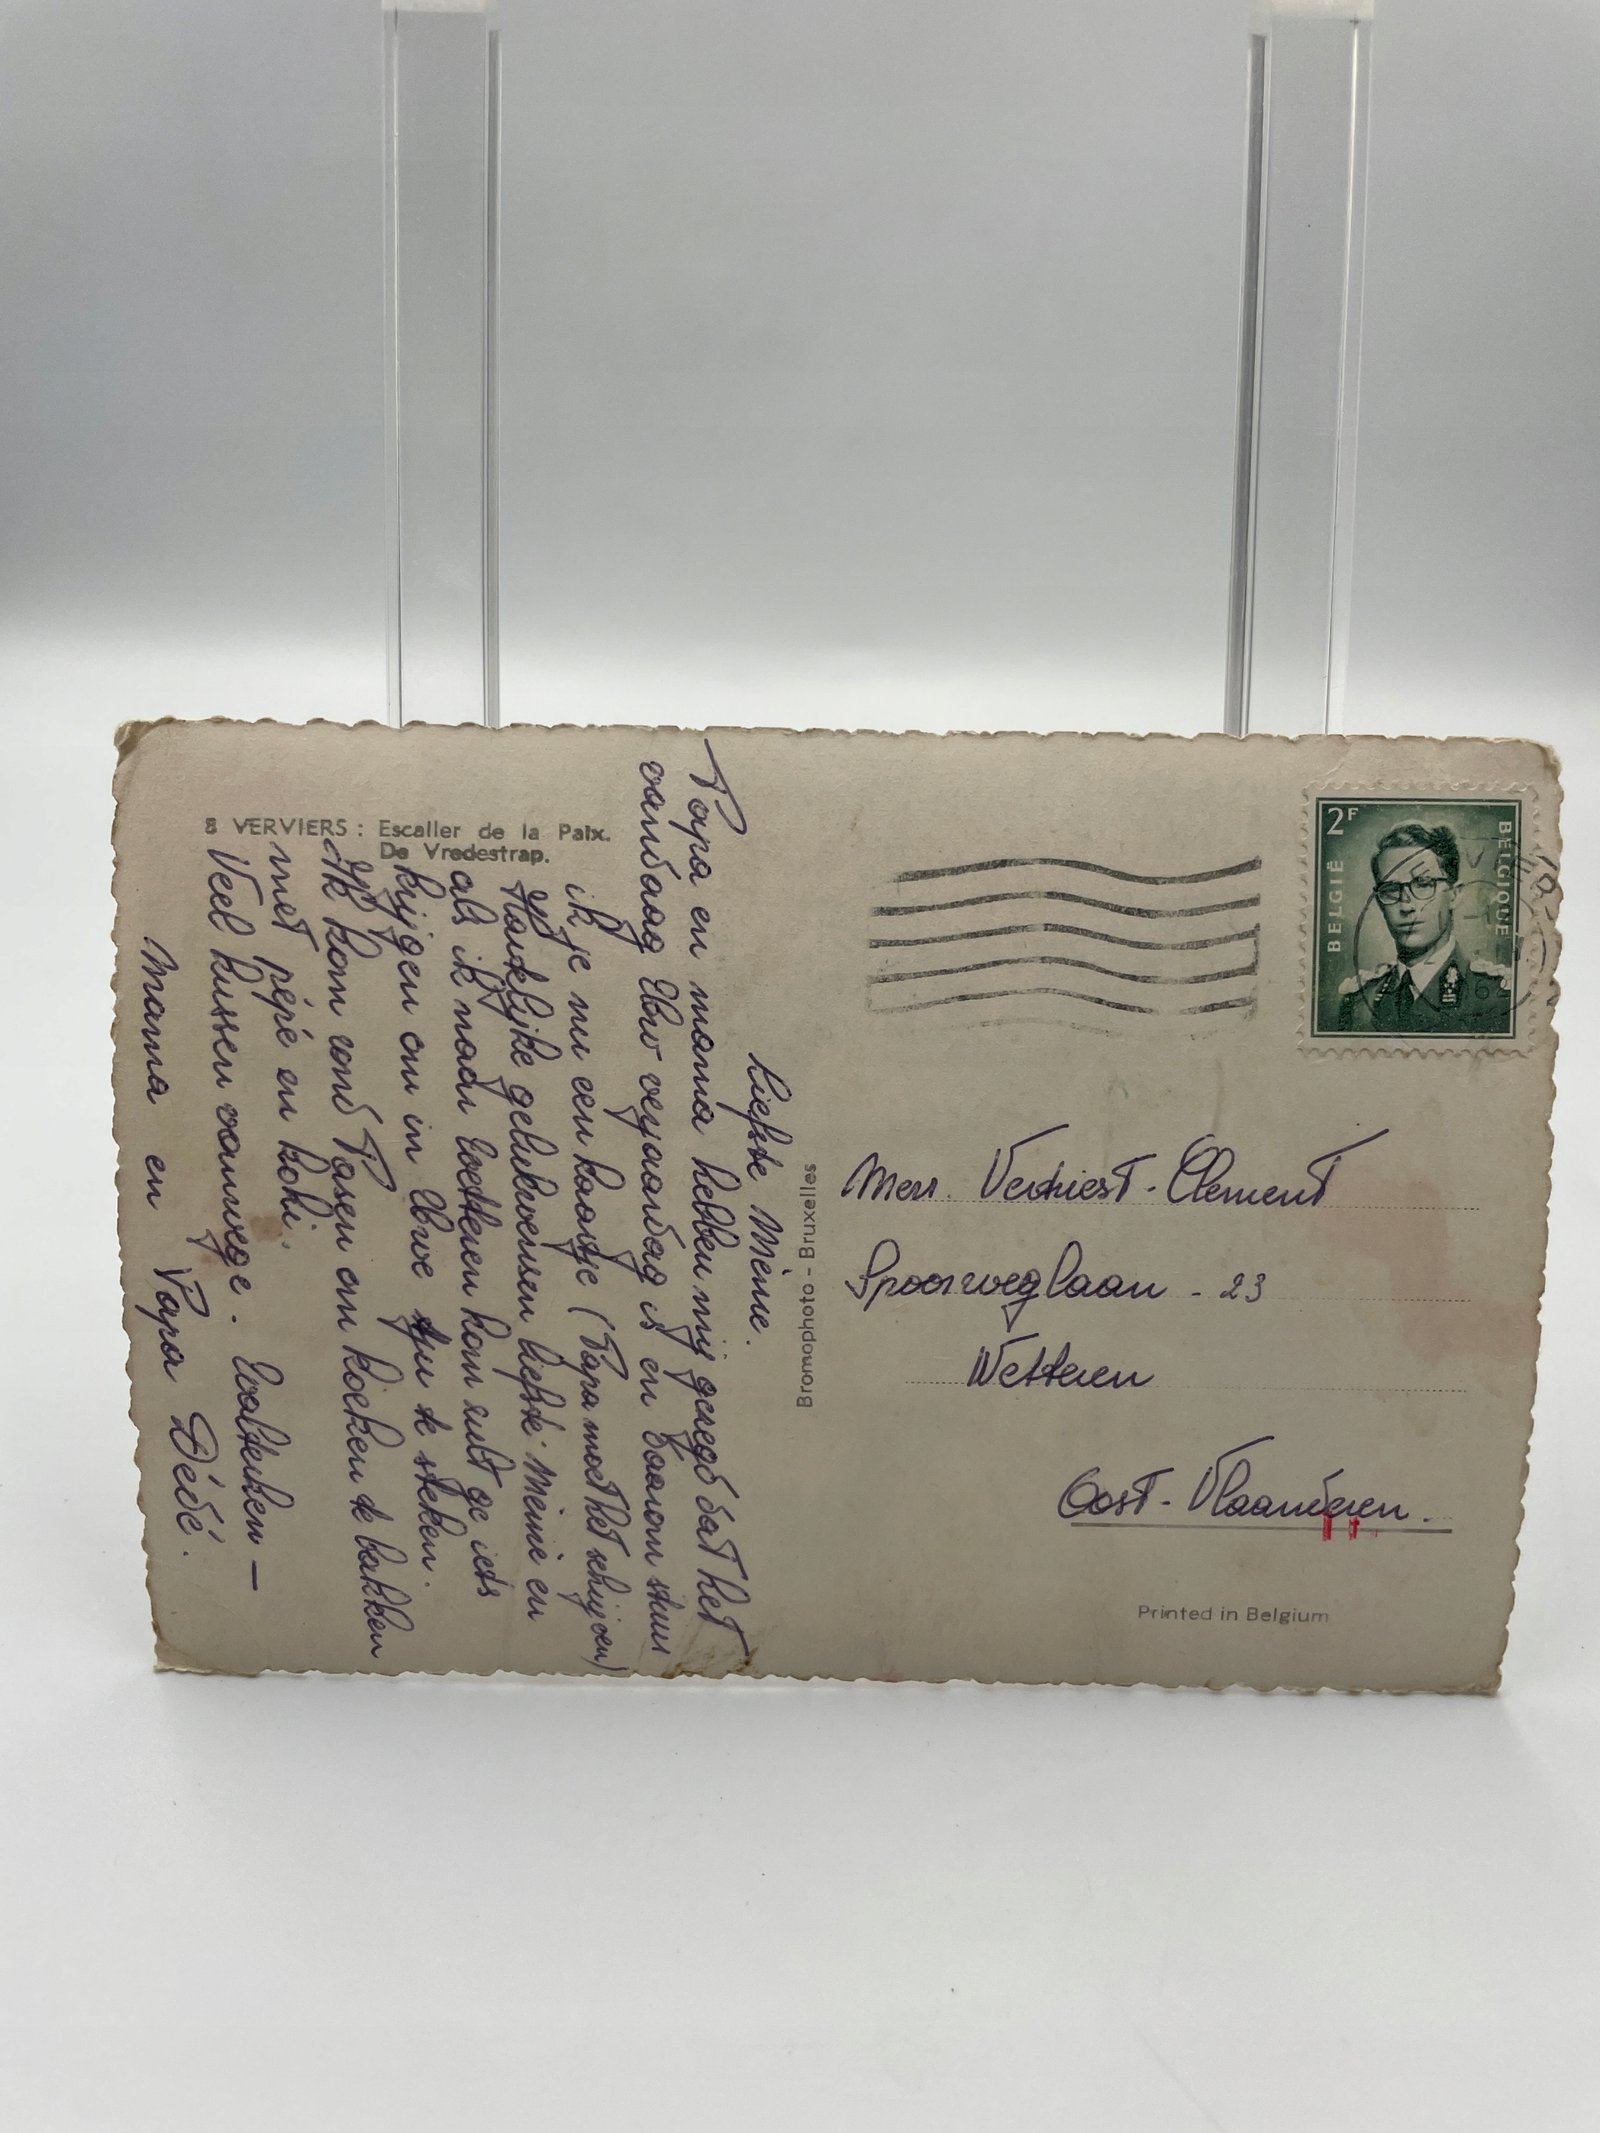 8 VERVIERS : Escalier de la Paix.
De Vredestrap.
Liefste Mémé.
Papa en mama hebben mij gezegd dat het
vandaag Uw verjaardag is en daarom stuur
ik je nu een kaartje (Papa moet het schrijven)
Hartelijke gelukwensen liefste Mémé en
als ik naar Wetteren kom zult ge iets
krijgen om in Uwe te steken.
Ik kom rond Pasen om koeken te bakken
met pépé en koki.
Veel kussen vanwege. Walterken –
Mama en Papa Dédé.
Bromophoto - Bruxelles
2F
BELGIË
BELGIQUE
Mevr. Verhiest - Clement
Spoorweglaan - 23
Wetteren
Oost-Vlaanderen.
Printed in Belgium